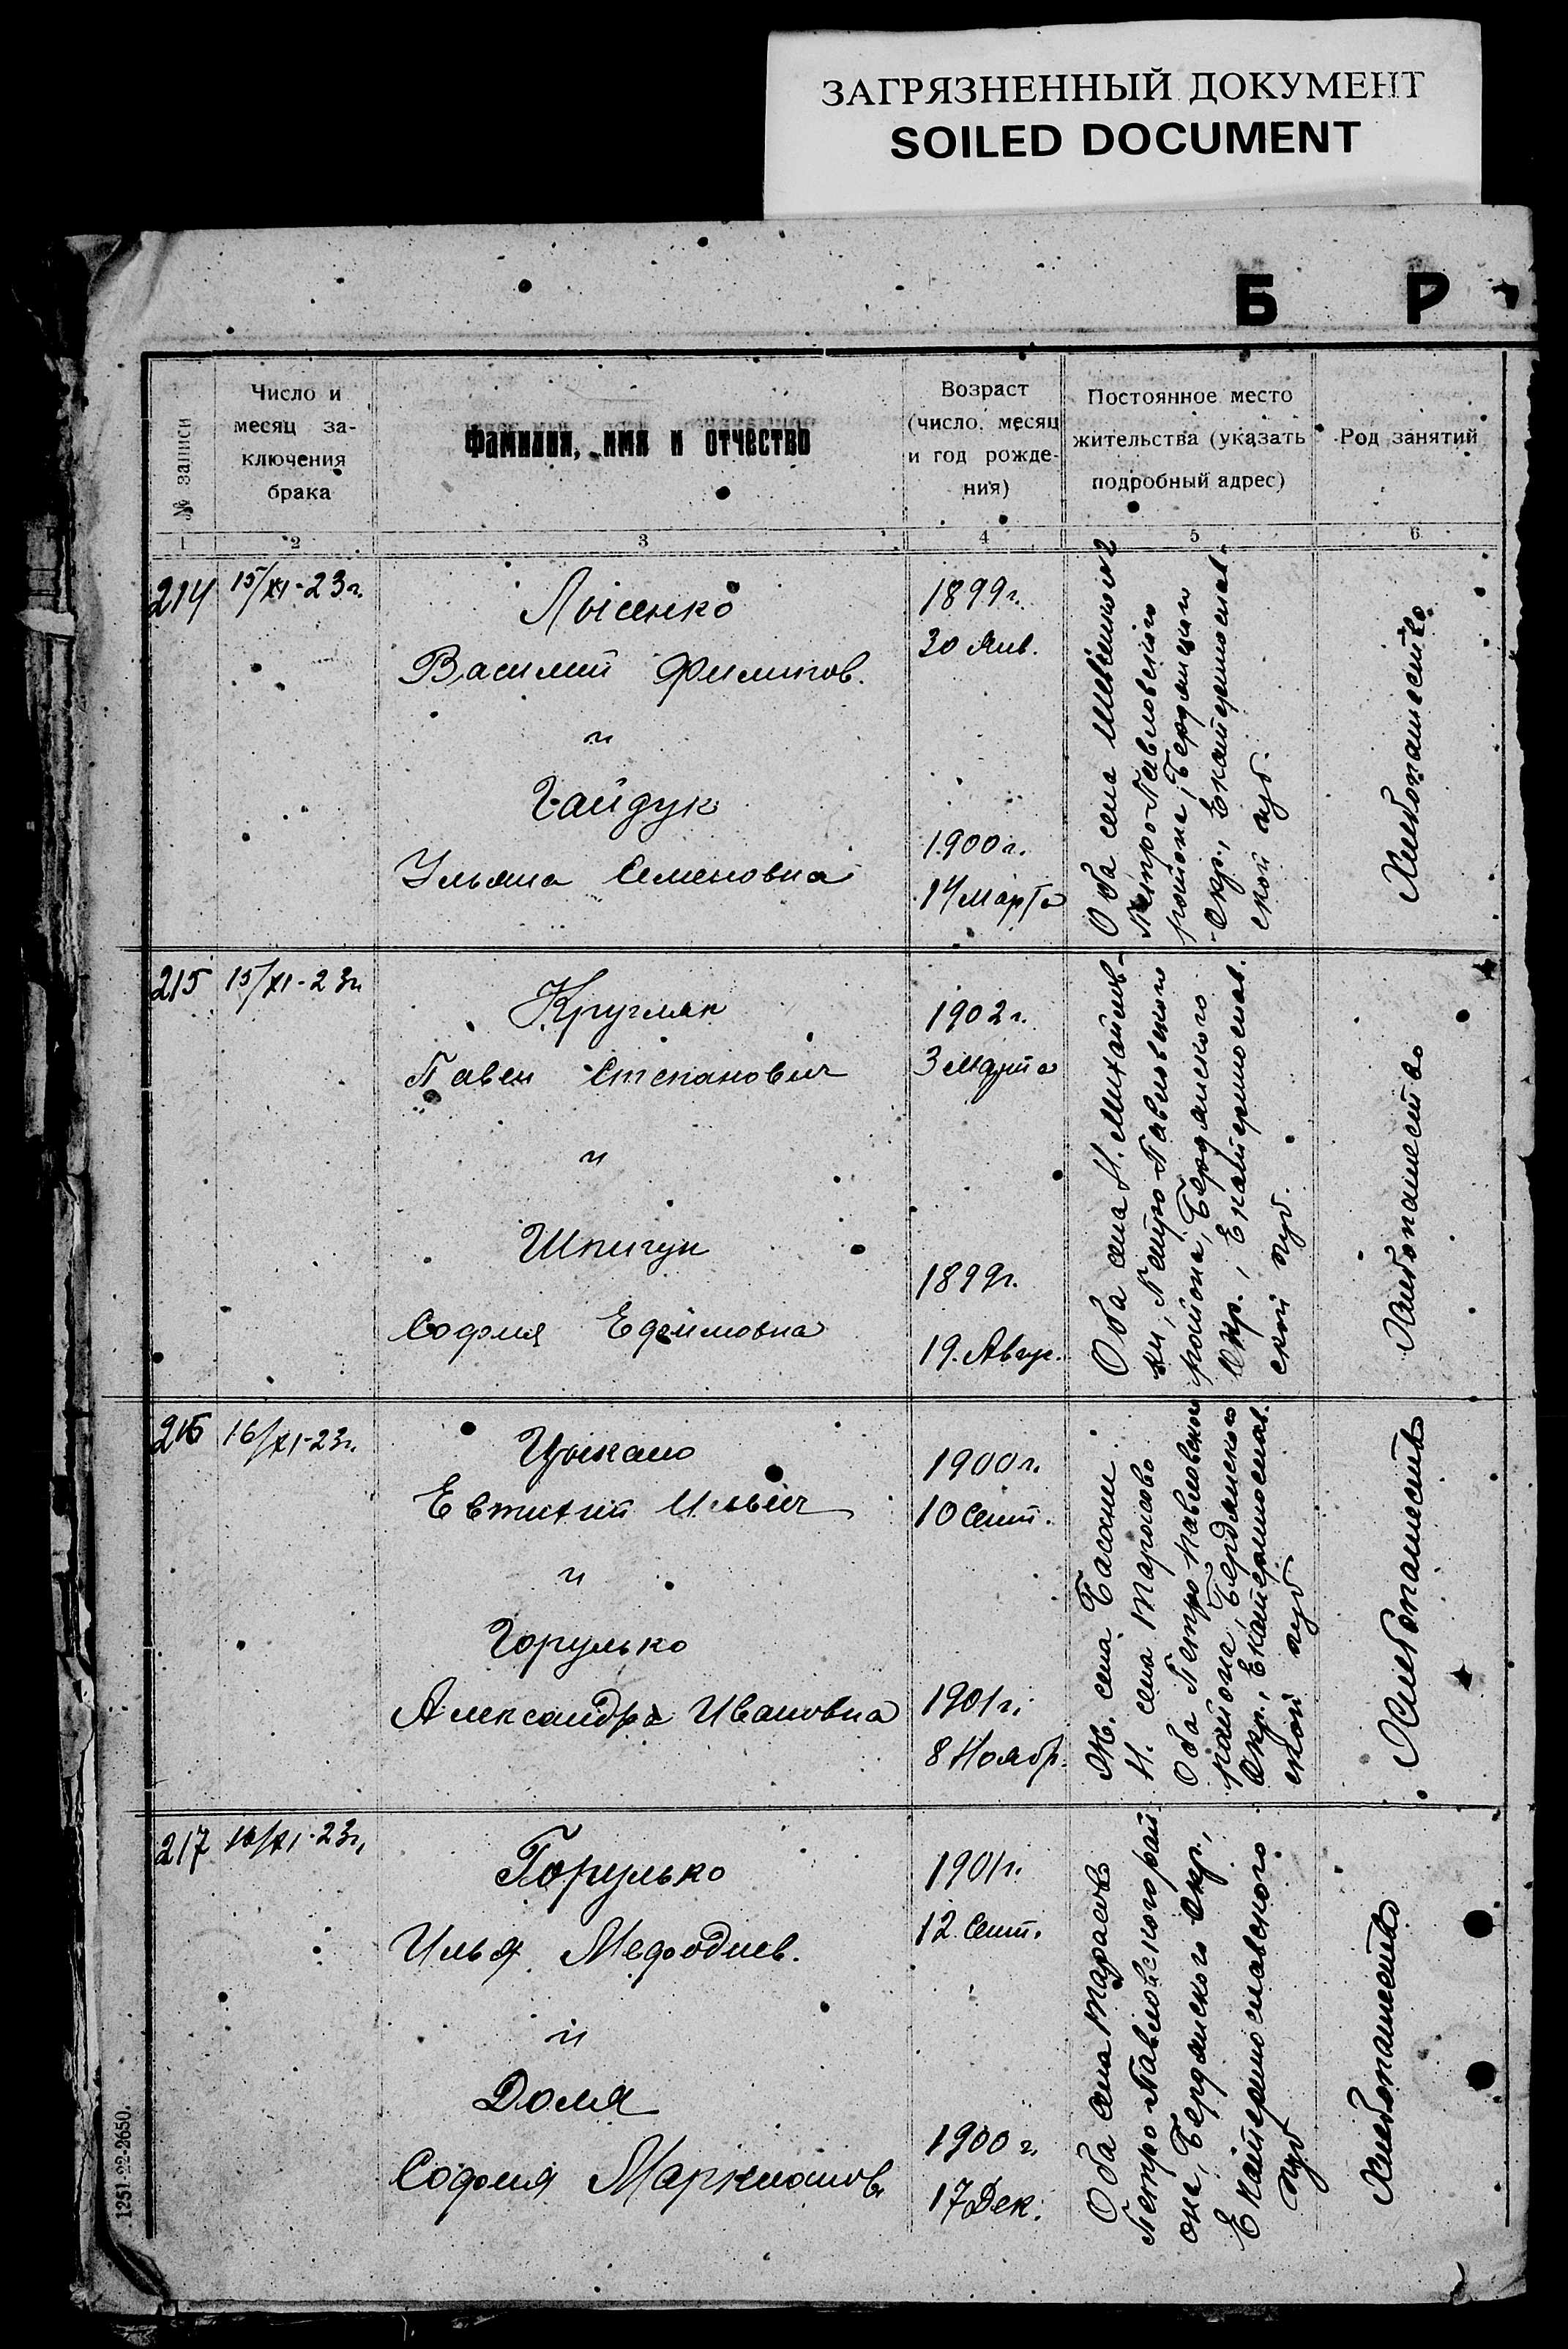 ЗАГРЯЗНЕННЫЙ ДОКУМЕНТ
SOILED DOCUMENT
Б Р
№ записи
Число и
месяц за-
ключения
брака
Фамилия, имя и отчество
Возраст
(число, месяц
и год рожде-
ния)
Постоянное место
жительства (указать
подробный адрес)
Род занятий
1 2 3 4 5 6
214
15/XI-23г.
Лысенко
Василий Филипов.
и
Гайдук
Ульяна Семеновна
1899г.
30 Янв.
1900г.
14 Марта
Оба села
Петро-Павловского
района, Бердянского
Окр., Екатеринослав-
ской губ.
Хлебопашество
215
15/XI-23г.
Кругляк
Павел Степанович
и
Шпигун
София Ефимовна
1902г.
3 Марта
1899г.
19. Авгус.
Оба села Н. Михайлов-
ки, Петро-Павловского
района, Бердянского
Окр., Екатеринослав.
ской губ.
Хлебопашество
216
16/XI-23г.
Цыкало
Евтихий Ильич
и
Горулько
Александра Ивановна
1900г.
10 Сент.
1901г.
8 Ноябр.
Ж. села
Н. села Тарасово
Оба Петро Павловского
района, Бердянского
Окр., Екатеринослав.
ской губ
Хлебопашество
217
16/XI-23г.
Горулько
Илья Мефодиев.
и
Доля
София Маркианов.
1901г.
12 Сент.
1900 г.
17 Дек.
Оба села Тарасово
Петро-Павловского рай
она, Бердянского Окр.,
Екатеринославского
губ
Хлебопашество
1251-22-2650.